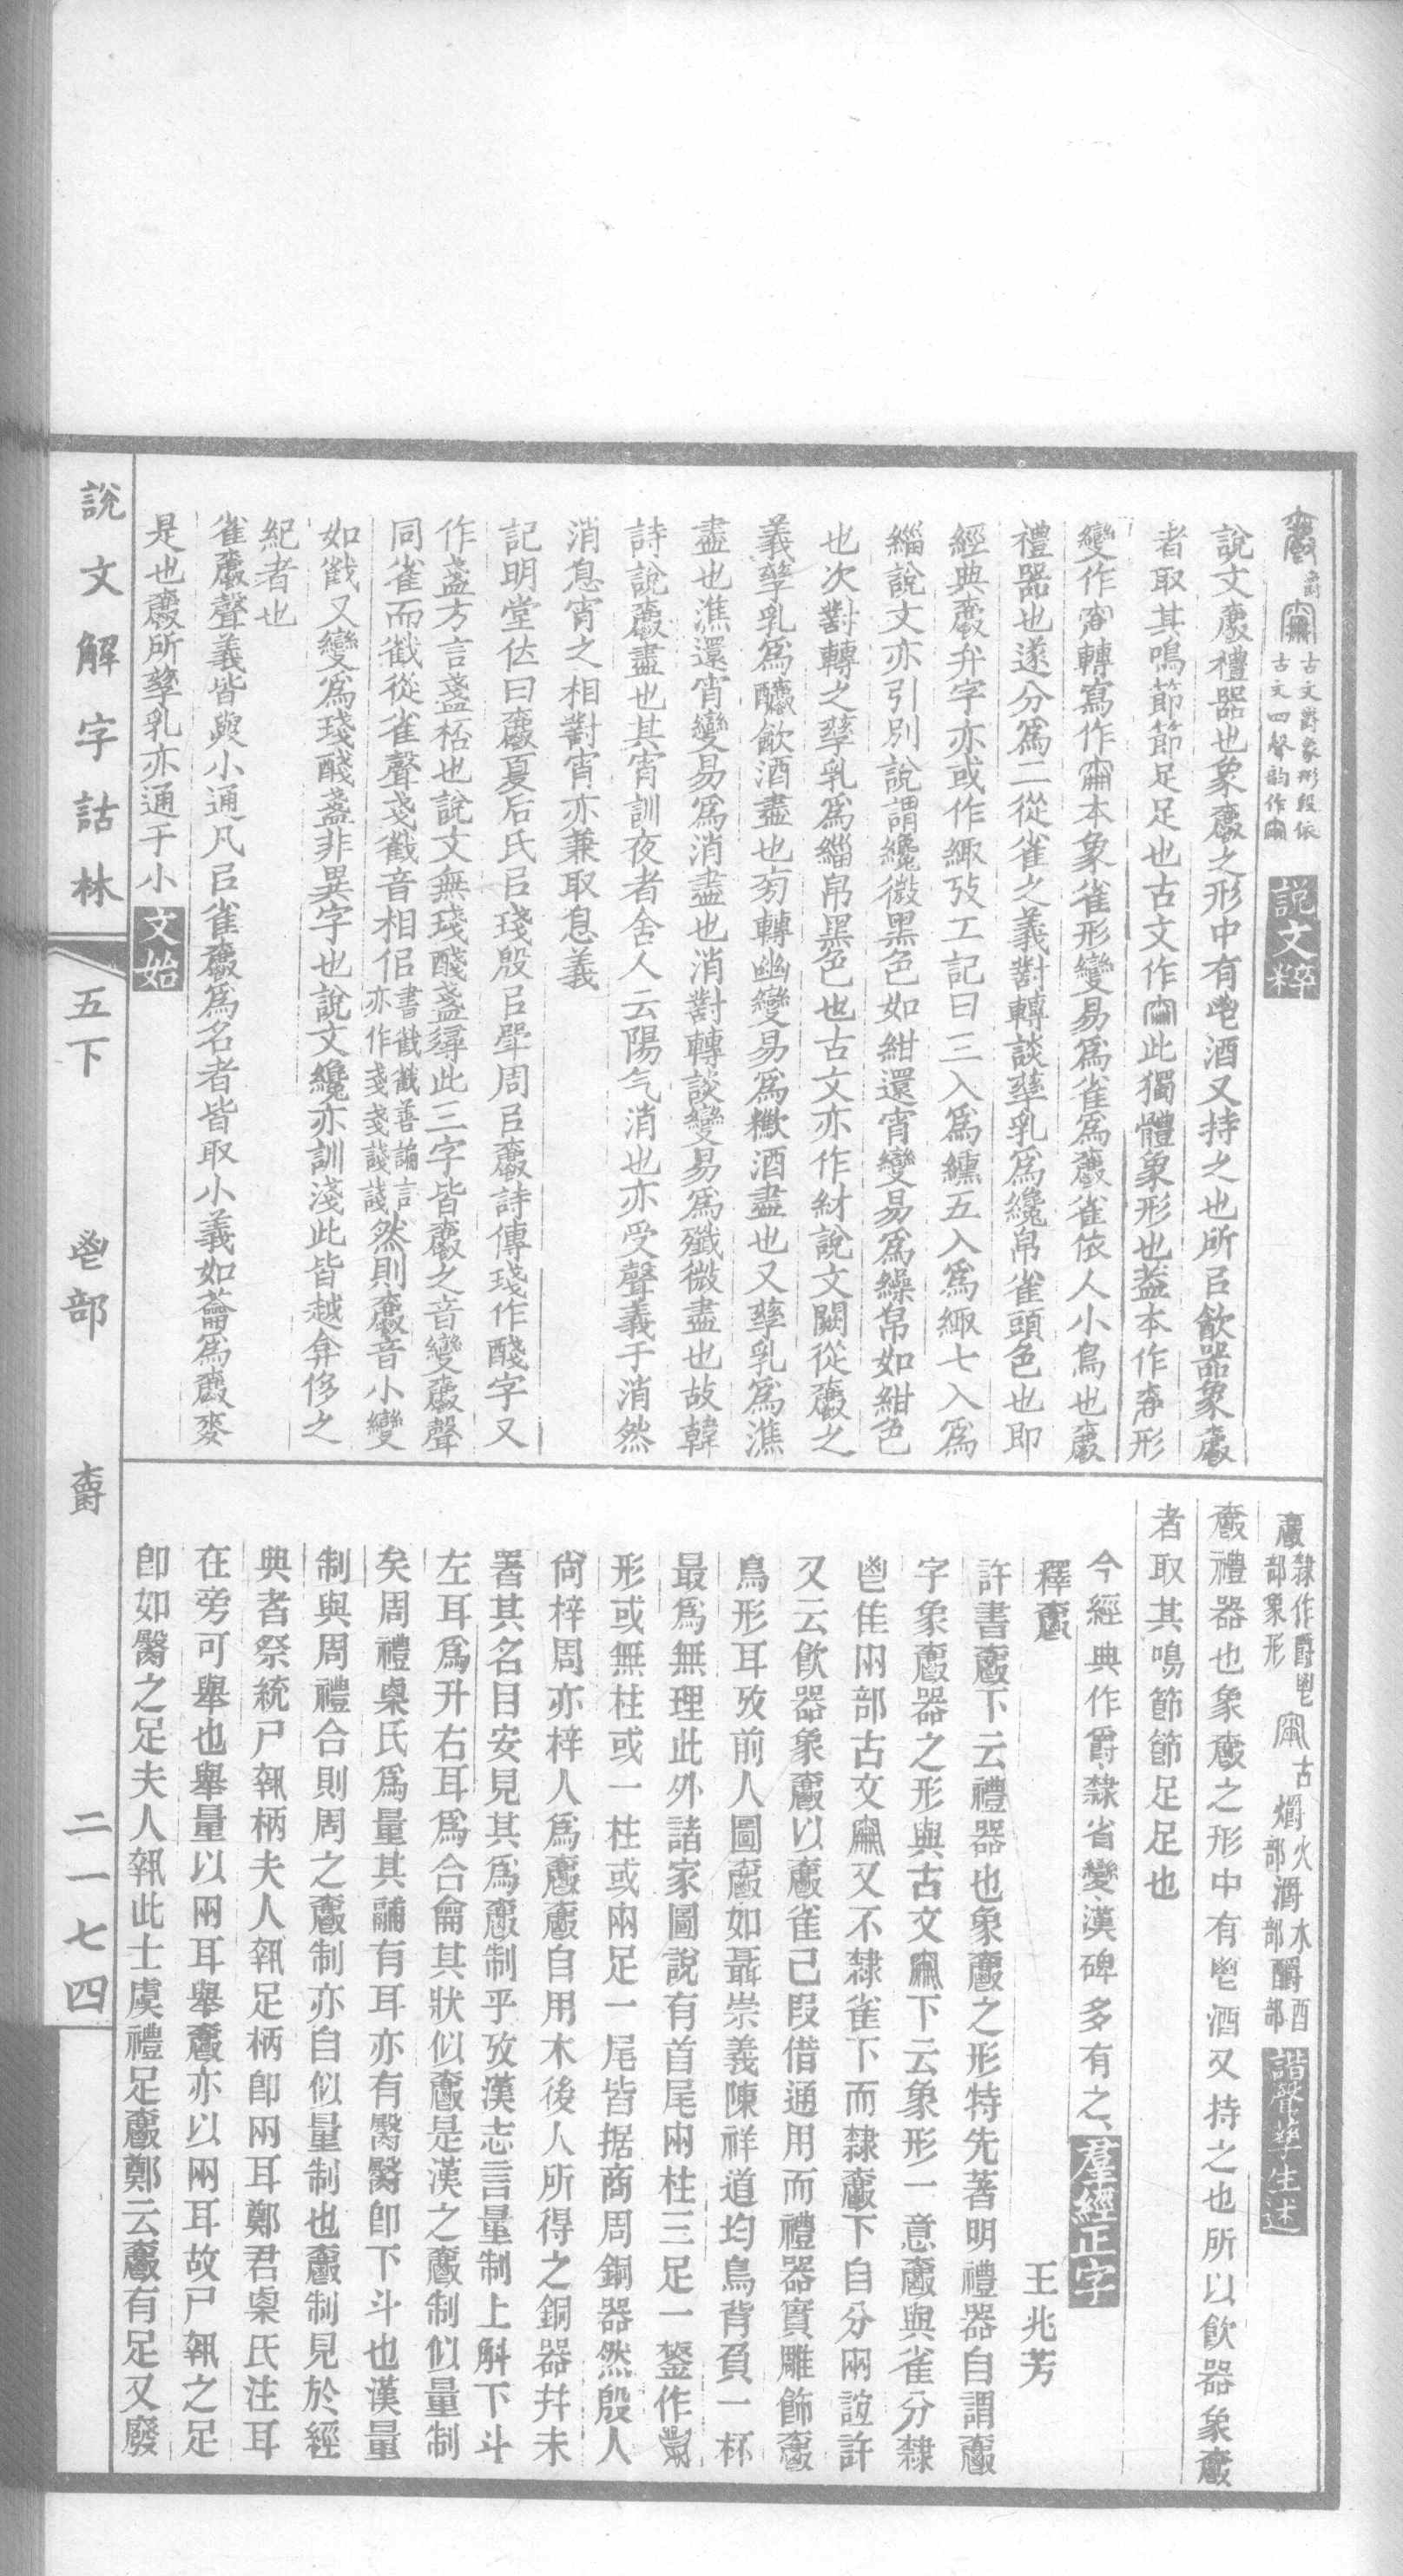 爵 古文爵象形段依
古文四聲韵作 說文粹
說文𩰥禮器也象𩰥之形中有鬯酒又持之也所㠯飲器象𩰥
者取其鳴節節足足也古文作此獨體象形也蓋本作形
變作轉寫作本象雀形變易爲雀爲𩰥雀依人小鳥也𩰥
禮器也遂分爲二從雀之義對轉談孳乳爲纔帛雀頭色也卽
經典𩰥弁字亦或作緅攷工記曰三入爲纁五入爲緅七入爲
緇說文亦引別說謂纔微黑色如紺還宵變易爲繰帛如紺色
也次對轉之孳乳爲緇帛黑色也古文亦作紂說文闕從𩰥之
義孳乳爲釂飮酒盡也旁轉幽變易爲酒盡也又孳乳爲潐
盡也潐還宵變易爲消盡也消對轉談變易爲殲微盡也故韓
詩說𩰥盡也其宵訓夜者舍人云陽气消也亦受聲義于消然
消息宵之相對宵亦兼取息義
記明堂位曰𩰥夏后氏㠯琖殷㠯斝周㠯𩰥詩傳琖作醆字又
作盞方言盞桮也說文無琖醆盞尋此三字皆𩰥之音變𩰥聲
同雀而截從雀聲戔截音相侶書截截善諞言
亦作戔戔諓諓然則𩰥音小變
如截又變爲琖醆盞非異字也說文纔亦訓淺此皆越弇侈之
紀者也
雀𩰥聲義皆與小通凡㠯雀𩰥爲名者皆取小義如蕾爲𩰥麥
是也𩰥所孳乳亦通于小 文始
𩰥隸作爵鬯
部象形 古 爝火
部灂水
部釂酉
部 諧聲孳生述
𩰥禮器也象𩰥之形中有鬯酒又持之也所以飮器象𩰥
者取其鳴節節足足也
今經典作爵隸省變漢碑多有之、羣經正字
釋𩰥 王兆芳
許書𩰥下云禮器也象𩰥之形特先著明禮器自謂𩰥
字象𩰥器之形與古文下云象形一意𩰥與雀分隸
鬯隹兩部古文又不隸雀下而隸𩰥下自分兩誼許
又云飮器象𩰥以𩰥雀己叚借通用而禮器實雕飾𩰥
鳥形耳攷前人圖𩰥如聶崇義陳祥道均鳥背負一杯
最爲無理此外諸家圖說有首尾兩柱三足一鋬作
形或無柱或一柱或兩足一尾皆据商周銅器然殷人
尙梓周亦梓人爲𩰥𩰥自用木後人所得之銅器幷未
署其名目安見其爲𩰥制乎攷漢志言量制上斛下斗
左耳爲升右耳爲合龠其狀似𩰥是漢之𩰥制似量制
矣周禮㮚氏爲量其鬴有耳亦有臋臋卽下斗也漢量
制與周禮合則周之𩰥制亦自似量制也𩰥制見於經
典者祭統尸執柄夫人執足柄卽兩耳鄭君㮚氏注耳
在旁可舉也舉量以兩耳舉𩰥亦以兩耳故尸執之足
卽如臋之足夫人執此士虞禮足𩰥鄭云𩰥有足又廢
說文解字詁林 五下 鬯部 𩰥 二一七四